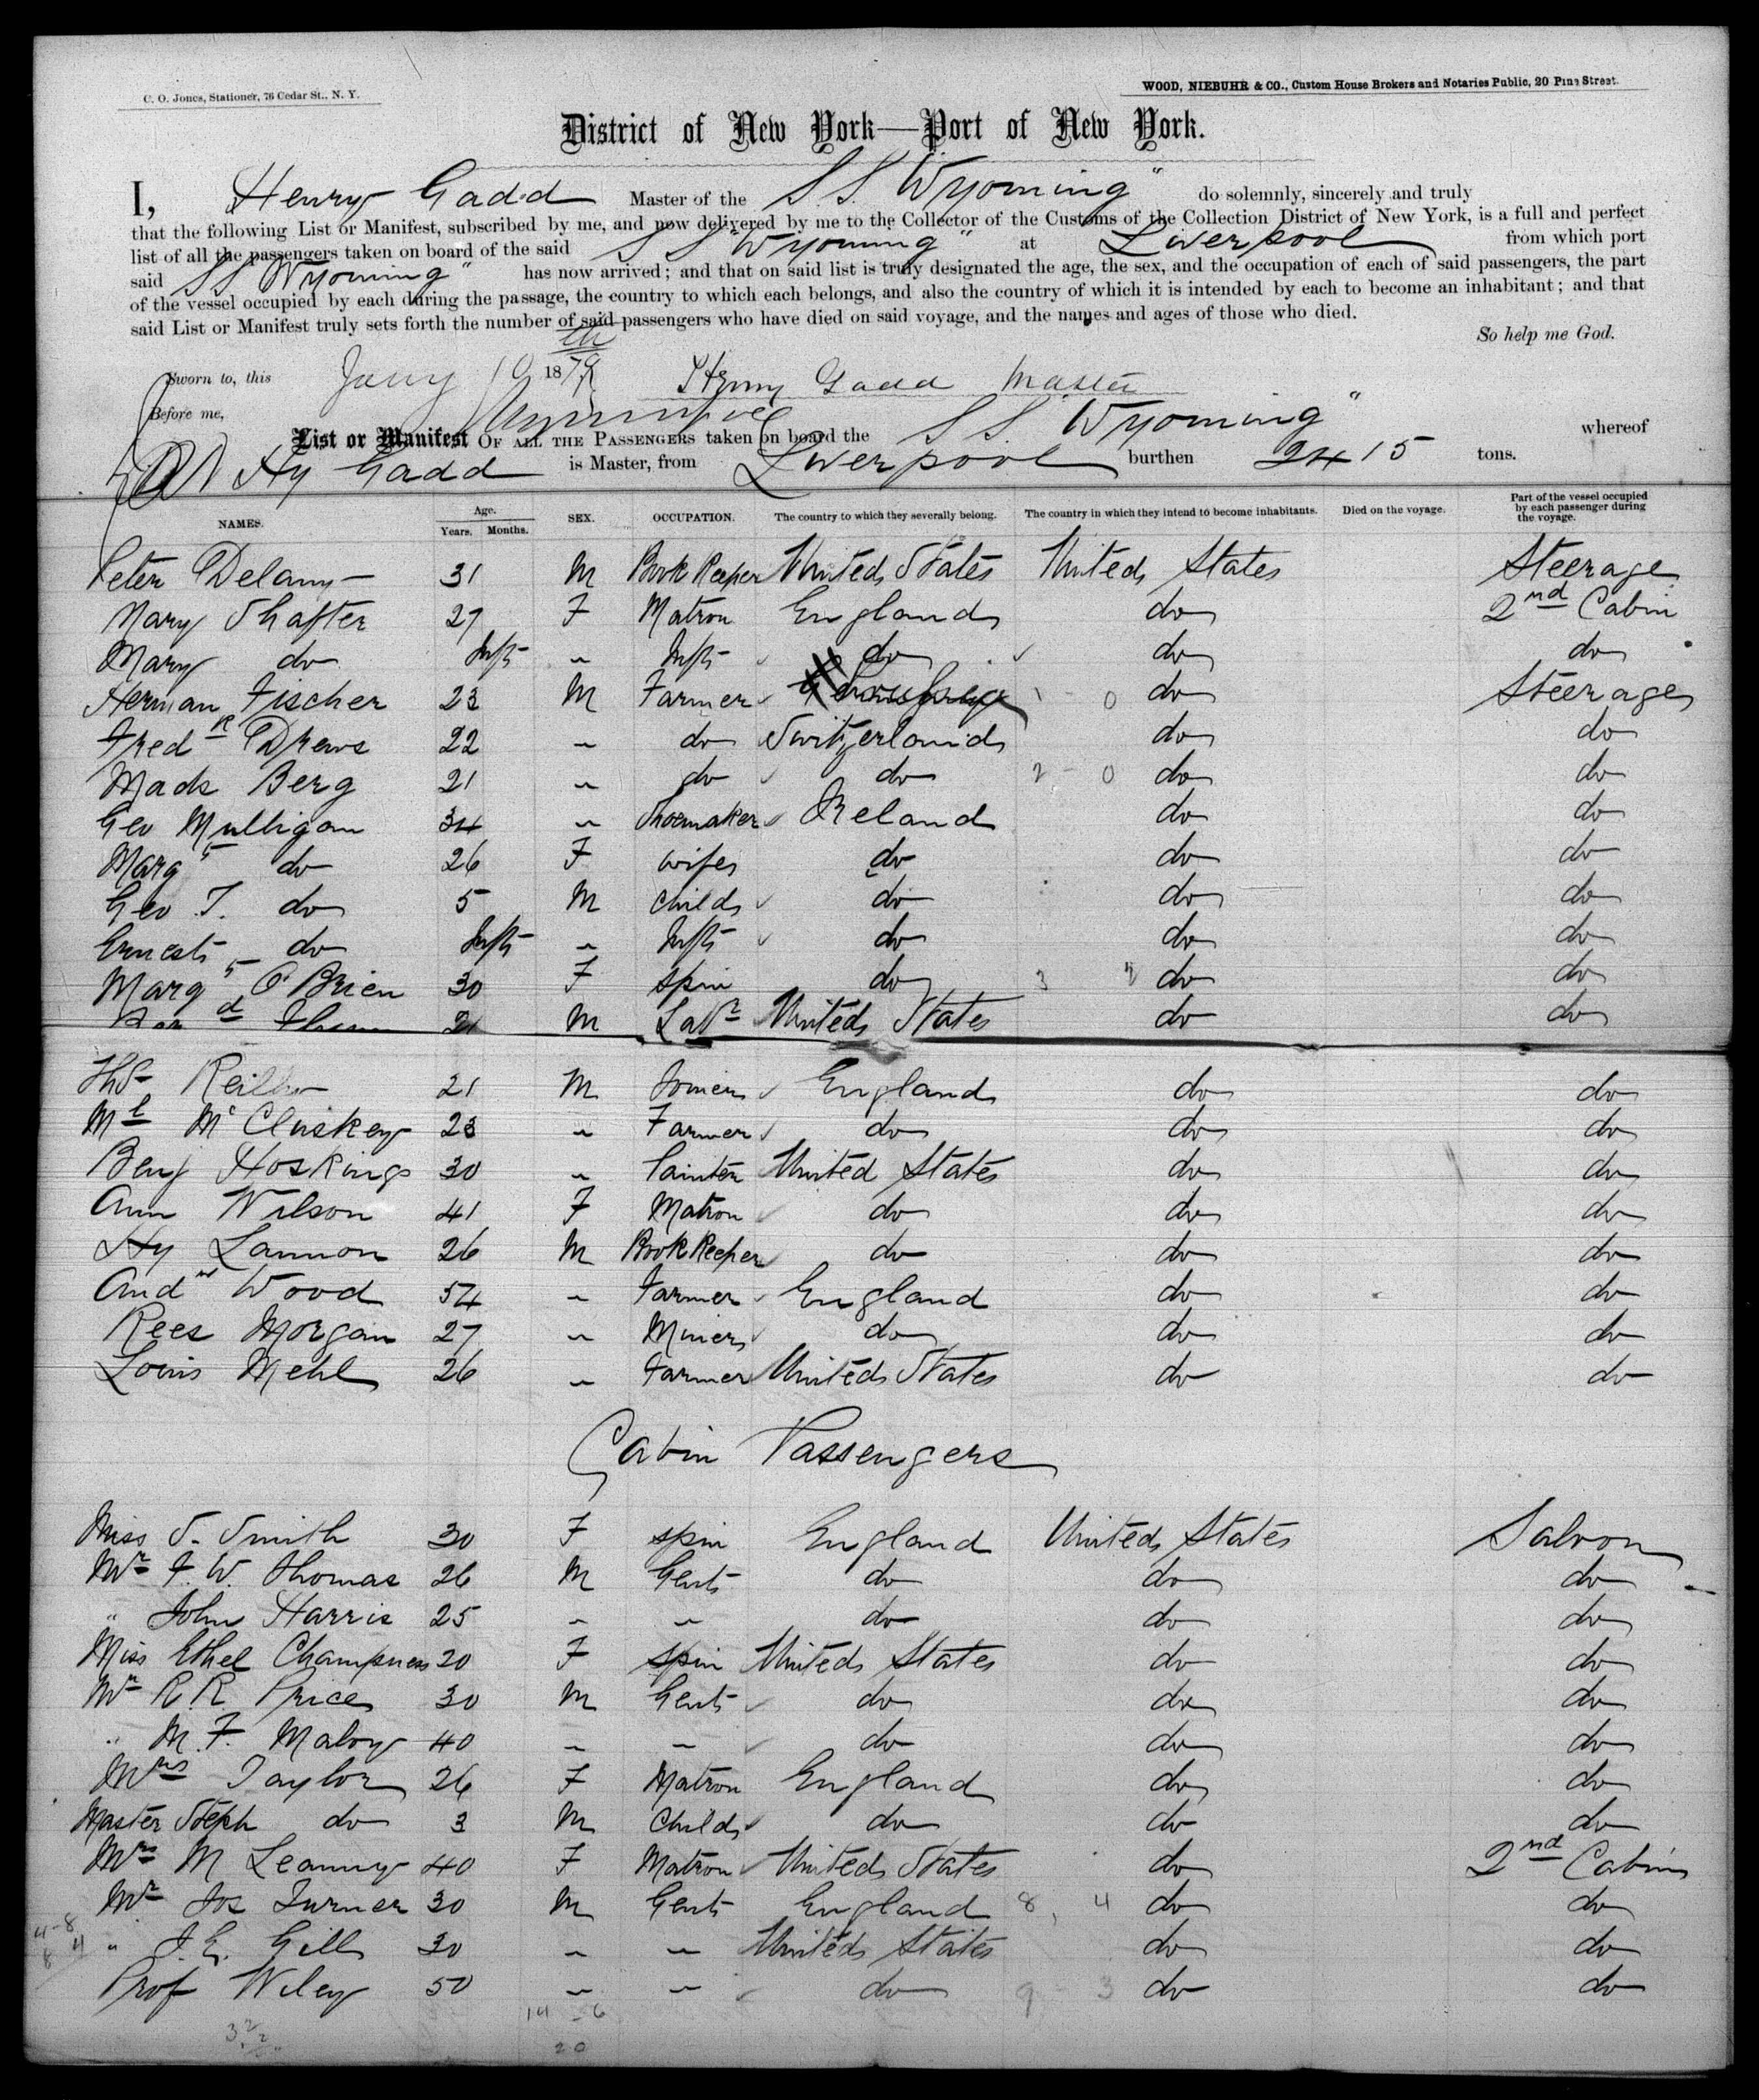 C. O. Jones, Stationer, 76 Cedar St., N. Y.
WOOD, NIEBUHR & CO., Custom House Brokers and Notaries Public, 20 Pine Street.
District of New York—Port of New York.
I, Henry Gadd Master of the S.S. Wyoming" do solemnly, sincerely and truly
that the following List or Manifest, subscribed by me, and now delivered by me to the Collector of the Customs of the Collection District of New York, is a full and perfect
list of all the passengers taken on board of the said S S "Wyoming" at Liverpool from which port
said SS Wyoming" has now arrived; and that on said list is truly designated the age, the sex, and the occupation of each of said passengers, the part
of the vessel occupied by each during the passage, the country to which each belongs, and also the country of which it is intended by each to become an inhabitant; and that
said List or Manifest truly sets forth the number of said passengers who have died on said voyage, and the names and ages of those who died.
So help me God.
Sworn to, this Jany 10th 1879 Henry Gadd Master
Before me,
List or Manifest OF ALL THE PASSENGERS taken on board the S S. Wyoming" whereof
Hy Gadd is Master, from Liverpool burthen 2415 tons.
NAMES. Age. Years. Months. SEX. OCCUPATION. The country to which they severally belong. The country in which they intend to become inhabitants. Died on the voyage. Part of the vessel occupied by each passenger during the voyage.
Peter Delany 31 M Book Keeper United States United States Steerage
Mary Shafter 27 F Matron England do 2nd Cabin
Mary do Inft " Inft do do do
Herman Fischer 23 M Farmer 1 - 0 do Steerage
Fredk Drews 22 " do Switzerland do do
Mads Berg 21 " do do 2 - 0 do do
Geo Mulligan 34 " Shoemaker Ireland do do
Margt do 26 F wife do do do
Geo T. do 5 M child do do do
Ernest do Inft " Inft do do do
Margt O'Brien 30 F spin do 3 do do
M Labr United States do do
Ths Reilly 21 M Joiner England do do
Ml McCluskey 23 " Farmer do do do
Benj Hoskings 30 " Painter United States do do
Ann Wilson 41 F Matron do do do
Hy Lannon 26 M Book Keeper do do do
Andw Wood 54 " Farmer England do do
Rees Morgan 27 " Miner do do do
Louis Mehl 26 " Farmer United States do do
Cabin Passengers
Miss S. Smith 30 F spin England United States Saloon
Mr F. W. Thomas 26 M Gent do do do
" John Harris 25 " " do do do
Miss Ethel Champness 20 F spin United States do do
Mr R R Price 30 M Gent do do do
" M. F. Maloy 40 " " do do do
Mrs Taylor 26 F Matron England do do
Master Steph do 3 M Child do do do
Mrs M Leanny 40 F Matron United States do 2nd Cabin
Mr Jos Turner 30 M Gent England 8, 4 do do
4-8
8 4 " J. E. Gill 30 " " United States do do
Prof Wiley 50 " " do 9 - 3 do do
14 - 6
20